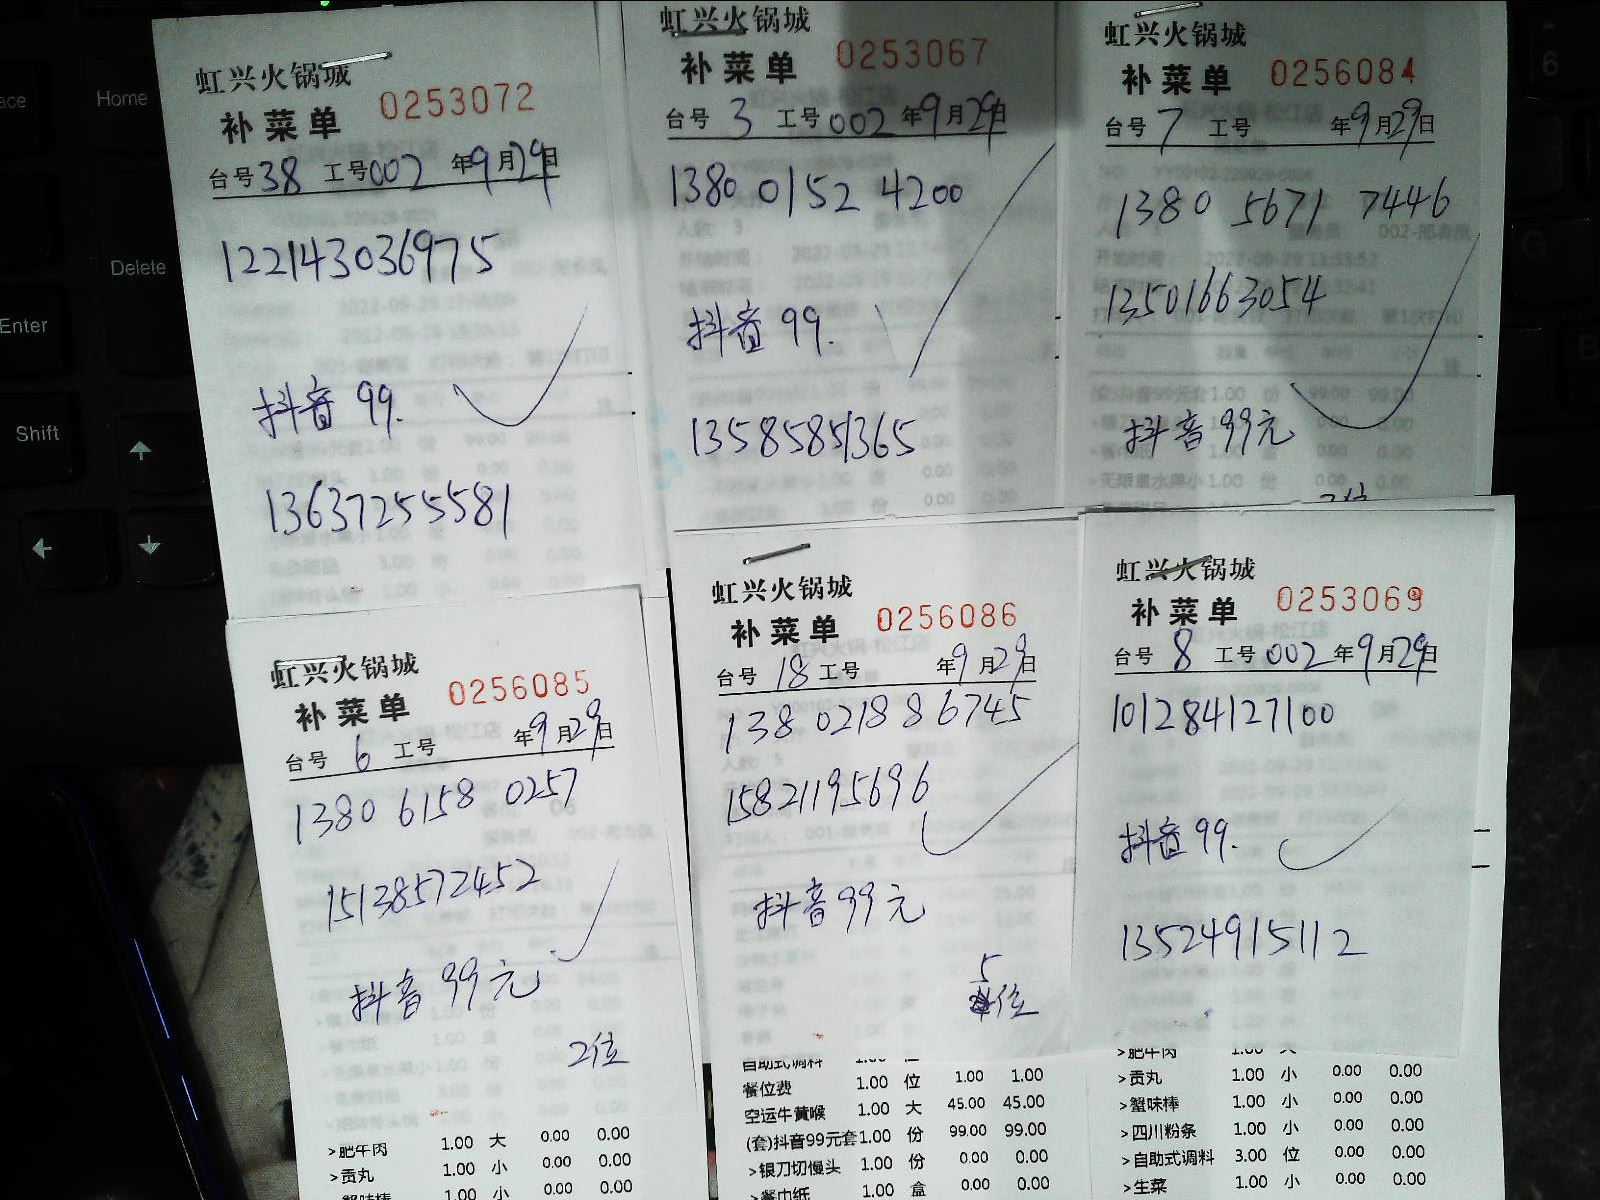 虹兴火锅城
补菜单 0253072
台号 38 工号 002 年 9 月 29 日
122143036975
抖音 99.
13637255581
虹兴火锅城
补菜单 0253067
台号 3 工号 002 年 9 月 29 日
1380 0152 4200
抖音 99.
13585851365
虹兴火锅城
补菜单 0256084
台号 7 工号 年 9 月 29 日
1380 5671 7446
13501663054
抖音 99元
虹兴火锅城
补菜单 0256085
台号 6 工号 年 9 月 29 日
1380 6158 0257
15138572452
抖音 99元
2位
>肥牛肉 1.00 大 0.00 0.00
>贡丸 1.00 小 0.00 0.00
>蟹味棒 1.00 小 0.00 0.00
虹兴火锅城
补菜单 0256086
台号 18 工号 年 9 月 29 日
1380218 8 6745
15821195696
抖音 99元
5位
自助式调料 1.00 位
餐位费 1.00 位 1.00 1.00
空运牛黄喉 1.00 大 45.00 45.00
(套)抖音99元套 1.00 份 99.00 99.00
>银刀切馒头 1.00 份 0.00 0.00
>餐巾纸 1.00 盒 0.00 0.00
虹兴火锅城
补菜单 0253069
台号 8 工号 002 年 9 月 29 日
101284127100
抖音 99.
13524915112
>肥牛肉 1.00 大 0.00 0.00
>贡丸 1.00 小 0.00 0.00
>蟹味棒 1.00 小 0.00 0.00
>四川粉条 1.00 小 0.00 0.00
>自助式调料 3.00 位 0.00 0.00
>生菜 1.00 小 0.00 0.00
Home
Delete
Enter
Shift